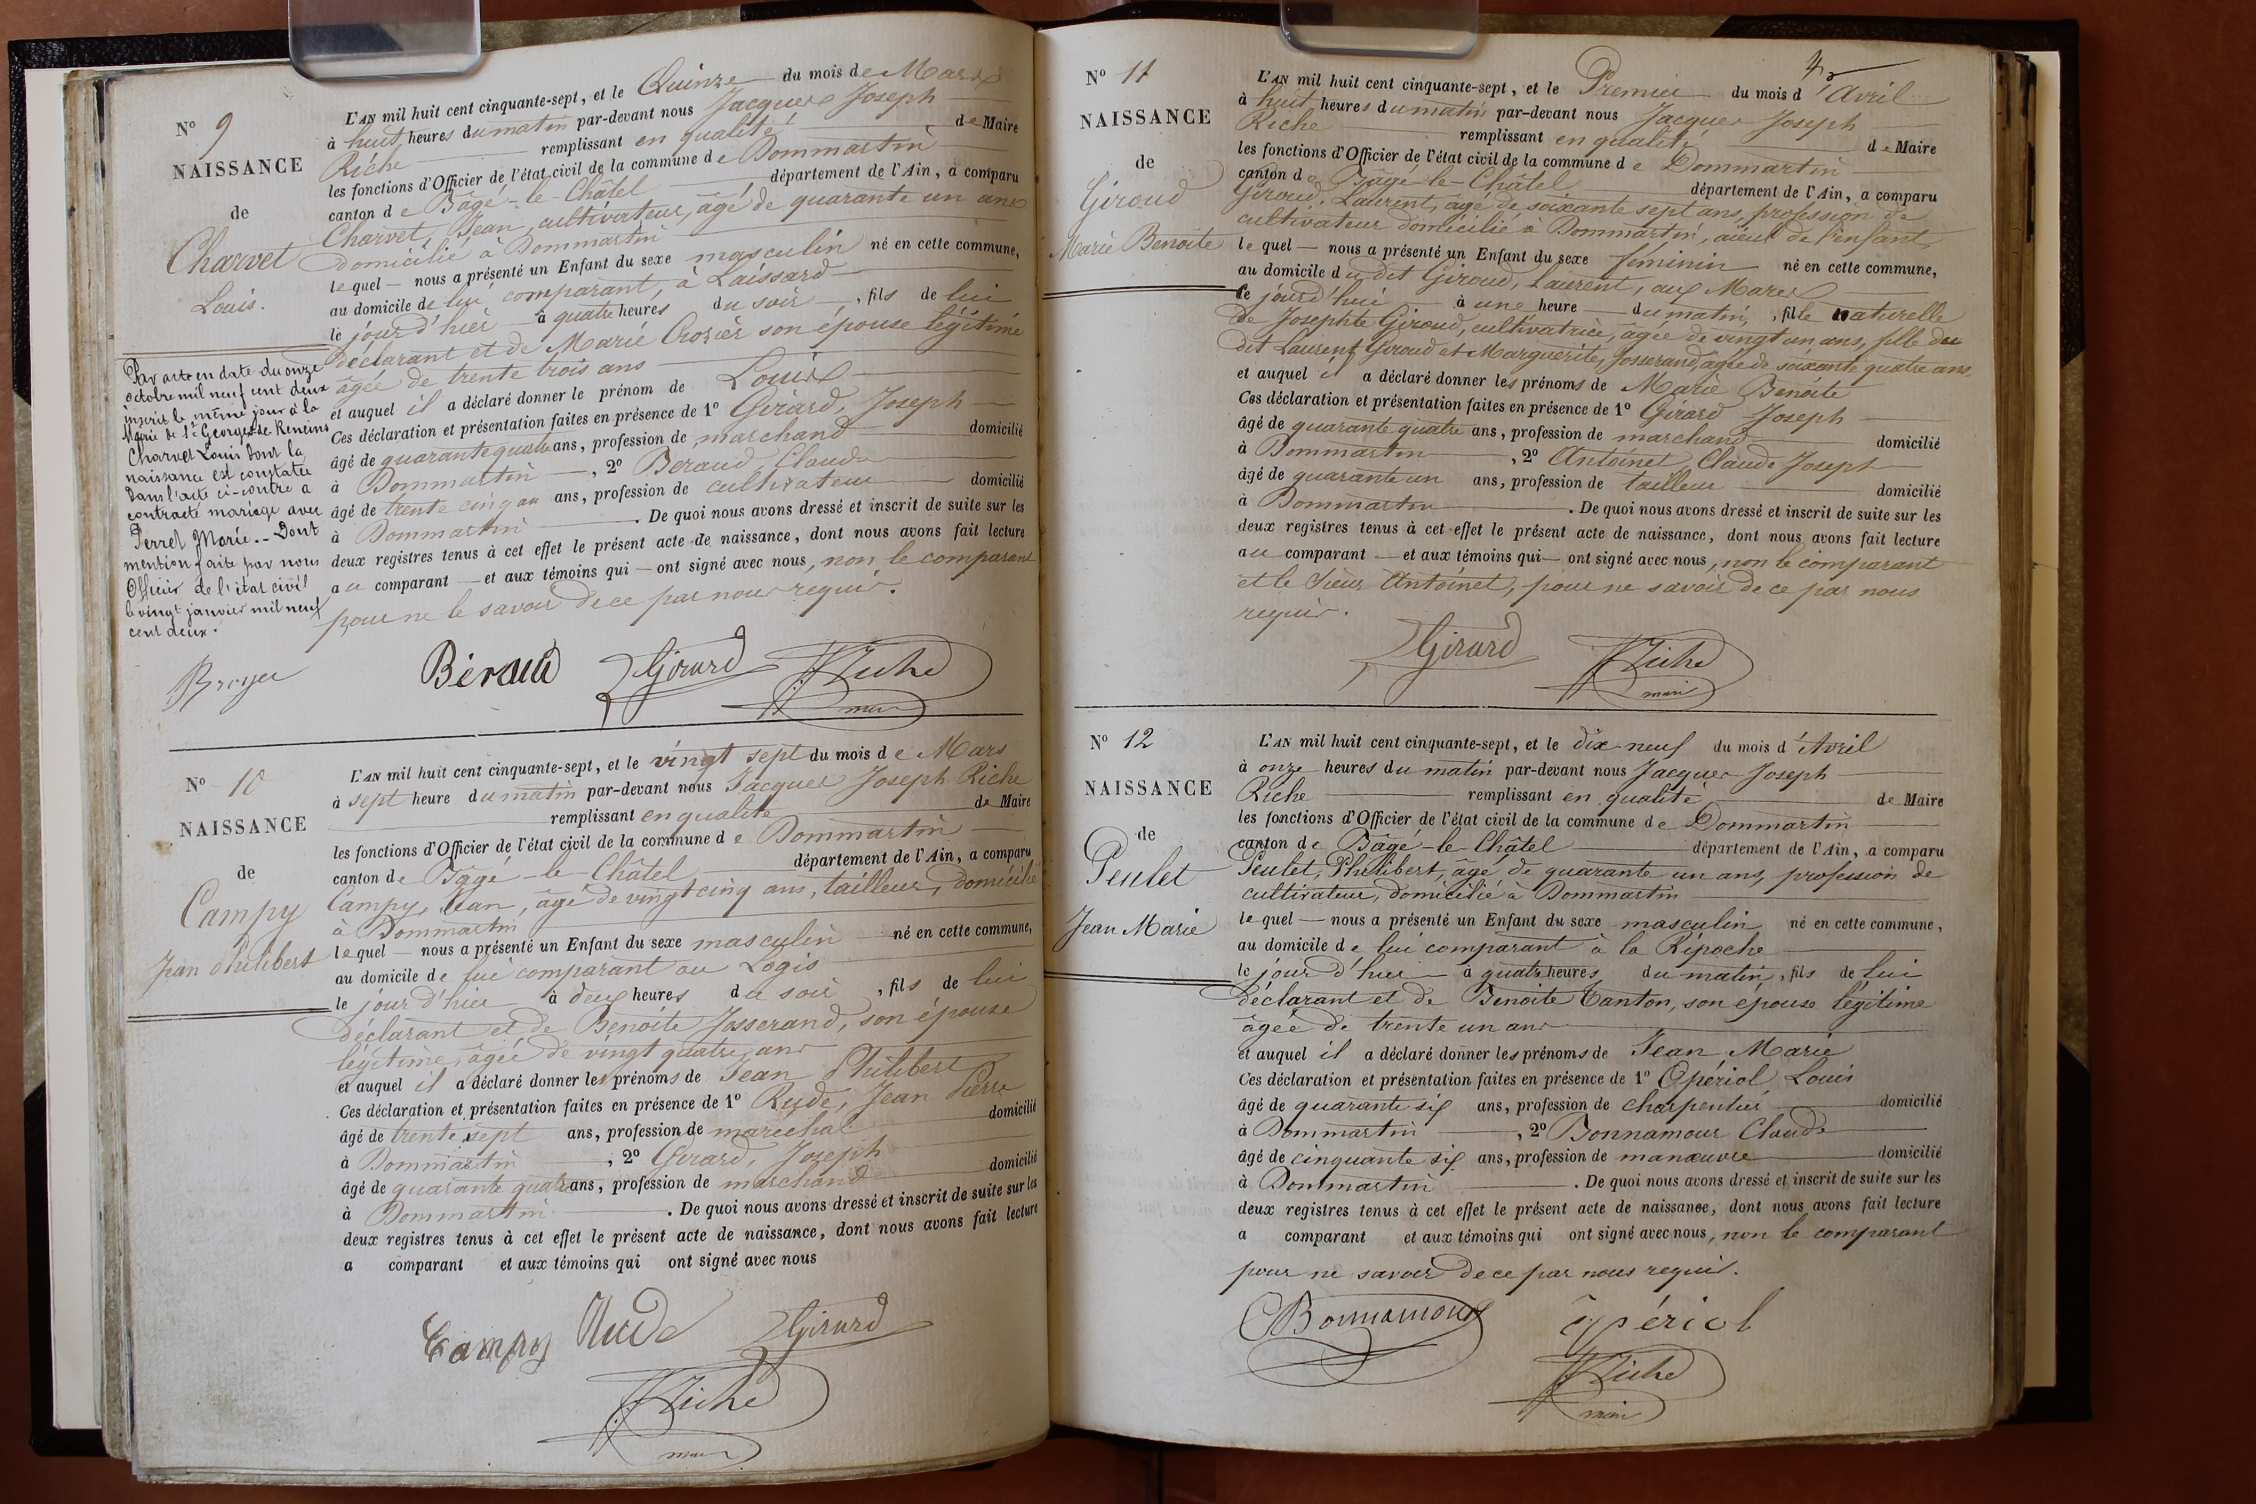 N° 9
NAISSANCE
de
Charvet
Louis.
Par acte en date du onze
octobre mil neuf cent deux
inscrit le même jour à la
Mairie de St Georges de Reneins
Charvet Louis dont la
naissance est constatée
dans l'acte ci-contre a
contracté mariage avec
Perret Marie. - Dont
mention faite par nous
Officier de l'état civil
le vingt janvier mil neuf
cent deux.
Broyer
L'AN mil huit cent cinquante-sept, et le Quinze du mois de Mars
à huit heures du matin par-devant nous Jacques Joseph
Riche remplissant en qualité de Maire
les fonctions d'Officier de l'état civil de la commune de Dommartin
canton de Bâgé-le-Châtel département de l'Ain, a comparu
Charvet, Jean, cultivateur, âgé de quarante un ans
domicilié à Dommartin
lequel nous a présenté un Enfant du sexe masculin né en cette commune,
au domicile de lui comparant, à Loissard
le jour d'hier à quatre heures du soir, fils de lui
déclarant et de Marie Crozier son épouse légitime
âgée de trente trois ans
et auquel il a déclaré donner le prénom de Louis
Ces déclaration et présentation faites en présence de 1° Girard, Joseph
âgé de quarante quatre ans, profession de marchand domicilié
à Dommartin, 2° Beraud Claude
âgé de trente cinq ans ans, profession de cultivateur domicilié
à Dommartin. De quoi nous avons dressé et inscrit de suite sur les
deux registres tenus à cet effet le présent acte de naissance, dont nous avons fait lecture
au comparant et aux témoins qui ont signé avec nous, non le comparant
pour ne le savoir de ce par nous requis.
Béraud Girard Riche
maire
N° 10
NAISSANCE
de
Campy
Jean Philibert
L'AN mil huit cent cinquante-sept, et le vingt sept du mois de Mars
à sept heure du matin par-devant nous Jacques Joseph Riche
remplissant en qualité de Maire
les fonctions d'Officier de l'état civil de la commune de Dommartin
canton de Bâgé-le-Châtel département de l'Ain, a comparu
Campy, Jean, âgé de vingt cinq ans, tailleur, domicilié
à Dommartin
lequel nous a présenté un Enfant du sexe masculin né en cette commune,
au domicile de lui comparant au Logis
le jour d'hier à deux heures du soir, fils de lui
déclarant et de Benoite Josserand, son épouse
légitime, âgée de vingt quatre ans
et auquel il a déclaré donner les prénoms de Jean Philibert
Ces déclaration et présentation faites en présence de 1° Rude, Jean Pierre
âgé de trente sept ans, profession de marechal domicilié
à Dommartin, 2° Girard, Joseph
âgé de quarante quatre ans, profession de marchand domicilié
à Dommartin. De quoi nous avons dressé et inscrit de suite sur les
deux registres tenus à cet effet le présent acte de naissance, dont nous avons fait lecture
a comparant et aux témoins qui ont signé avec nous
Campy Rude Girard
Riche
maire
N° 11
NAISSANCE
de
Giroud
Marie Benoite
L'AN mil huit cent cinquante-sept, et le Premier du mois d'Avril
à huit heures du matin par-devant nous Jacques Joseph
Riche remplissant en qualité de Maire
les fonctions d'Officier de l'état civil de la commune de Dommartin
canton de Bâgé-le-Châtel département de l'Ain, a comparu
Giroud, Laurent, âgé de soixante sept ans, profession de
cultivateur domicilié à Dommartin, aieul de l'enfant,
lequel nous a présenté un Enfant du sexe féminin né en cette commune,
au domicile du dit Giroud, Laurent, aux Mares
le jourd'hui à une heure du matin, fille naturelle
de Josephte Giroud, cultivatrice, âgée de vingt un ans, fille du
dit Laurent Giroud et Marguerite, Josserand, agée de soixante quatre ans
et auquel il a déclaré donner les prénoms de Marie Benoite
Ces déclaration et présentation faites en présence de 1° Girard Joseph
âgé de quarante quatre ans, profession de marchand domicilié
à Dommartin, 2° Antoinet Claude Joseph
âgé de quarante un ans, profession de tailleur domicilié
à Dommartin. De quoi nous avons dressé et inscrit de suite sur les
deux registres tenus à cet effet le présent acte de naissance, dont nous avons fait lecture
au comparant et aux témoins qui ont signé avec nous, non le comparant
et le sieur Antoinet, pour ne savoir de ce par nous
requis.
Girard Riche
maire
N° 12
NAISSANCE
de
Peulet
Jean Marie
L'AN mil huit cent cinquante-sept, et le dix-neuf du mois d'Avril
à onze heures du matin par-devant nous Jacques Joseph
Riche remplissant en qualité de Maire
les fonctions d'Officier de l'état civil de la commune de Dommartin
canton de Bâgé-le-Châtel département de l'Ain, a comparu
Peulet, Philibert, âgé de quarante un ans, profession de
cultivateur, domicilié à Dommartin
lequel nous a présenté un Enfant du sexe masculin né en cette commune,
au domicile de lui comparant à la Ripoche
le jour d'hier à quatre heures du matin, fils de lui
déclarant et de Benoite Canton, son épouse légitime
âgée de trente un ans
et auquel il a déclaré donner les prénoms de Jean Marie
Ces déclaration et présentation faites en présence de 1° Opériol Louis
âgé de quarante six ans, profession de charpentier domicilié
à Dommartin, 2° Bonnamour Claude
âgé de cinquante six ans, profession de manœuvre domicilié
à Dommartin. De quoi nous avons dressé et inscrit de suite sur les
deux registres tenus à cet effet le présent acte de naissance, dont nous avons fait lecture
a comparant et aux témoins qui ont signé avec nous, non le comparant
pour ne savoir de ce par nous requis.
CBonnamour opériol
Riche
maire